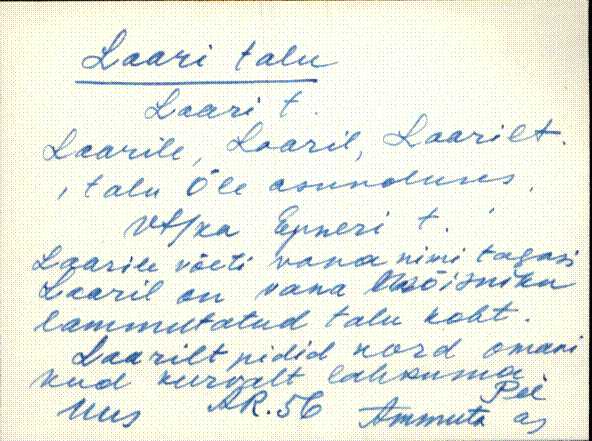 Laari talu
Laari t.
Laarile, Laaril, Laarilt.
, talu Õle asunduses,
vt/ka Epneri t.
Laarile võeti vana nimi tagasi
Laaril on vana mõisniku
lammutatud talu koht.
Laarilt pidid kord omani
kud kurvalt lahkuma.
Uus AR. 56 Ammuta as Pel